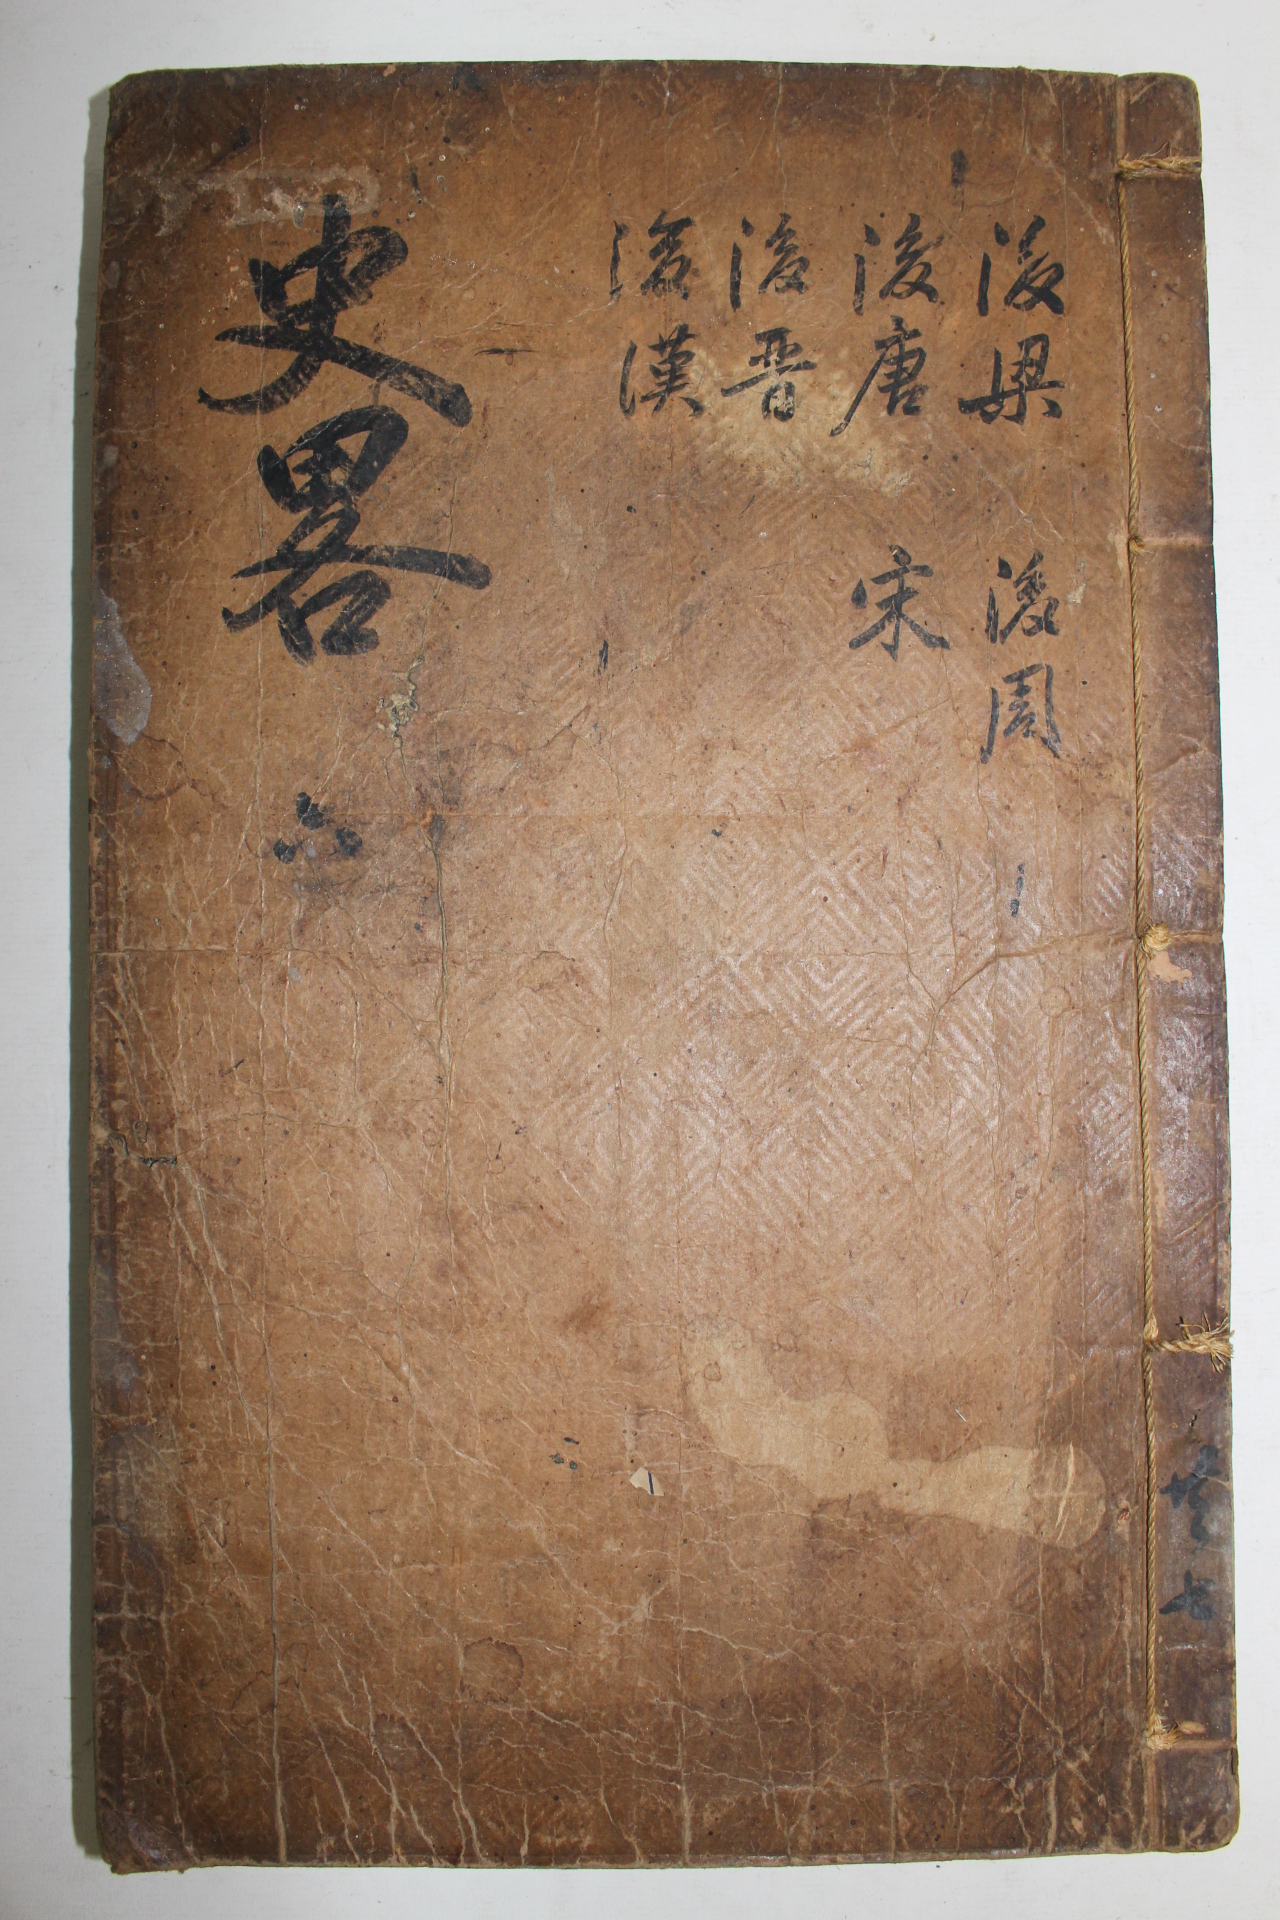 後梁 後周
後唐 宋
後晋
後漢
史畧 六
共七